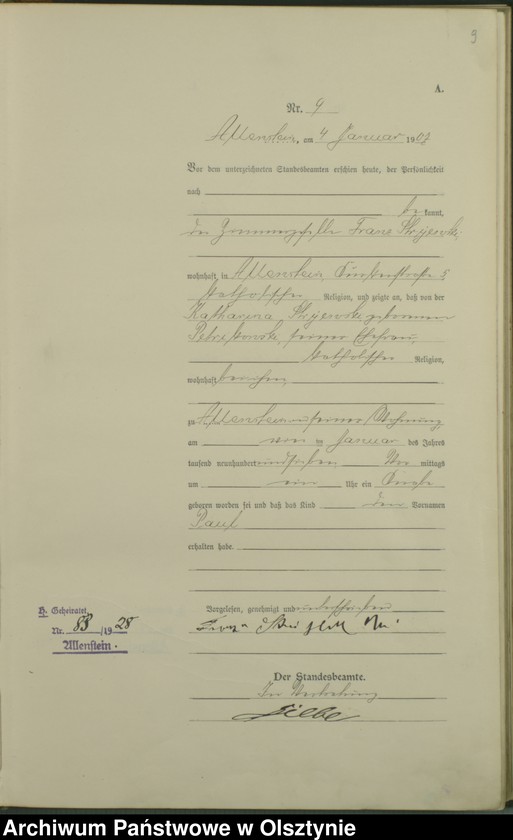 9
A.
Nr. 9
Allenstein, am 4 Januar 1907
Vor dem unterzeichneten Standesbeamten erschien heute, der Persönlichkeit
nach
be kannt,
der Zimmergeselle Franz
wohnhaft in Allenstein 5
katholischer Religion, und zeigte an, daß von der
Katharina geborenen
seiner Ehefrau,
katholischer Religion,
wohnhaft bei ihm,
zu Allenstein in seiner Wohnung,
am Januar des Jahres
tausend neunhundert und sieben Vor mittags
um ein Uhr ein Knabe
geboren worden sei und daß das Kind den Vornamen
Paul
erhalten habe.
Vorgelesen, genehmigt und unterschrieben
H. Geheiratet
Nr. 88 /1928
Allenstein.
Der Standesbeamte.
In Vertretung
Archiwum Państwowe w Olsztynie